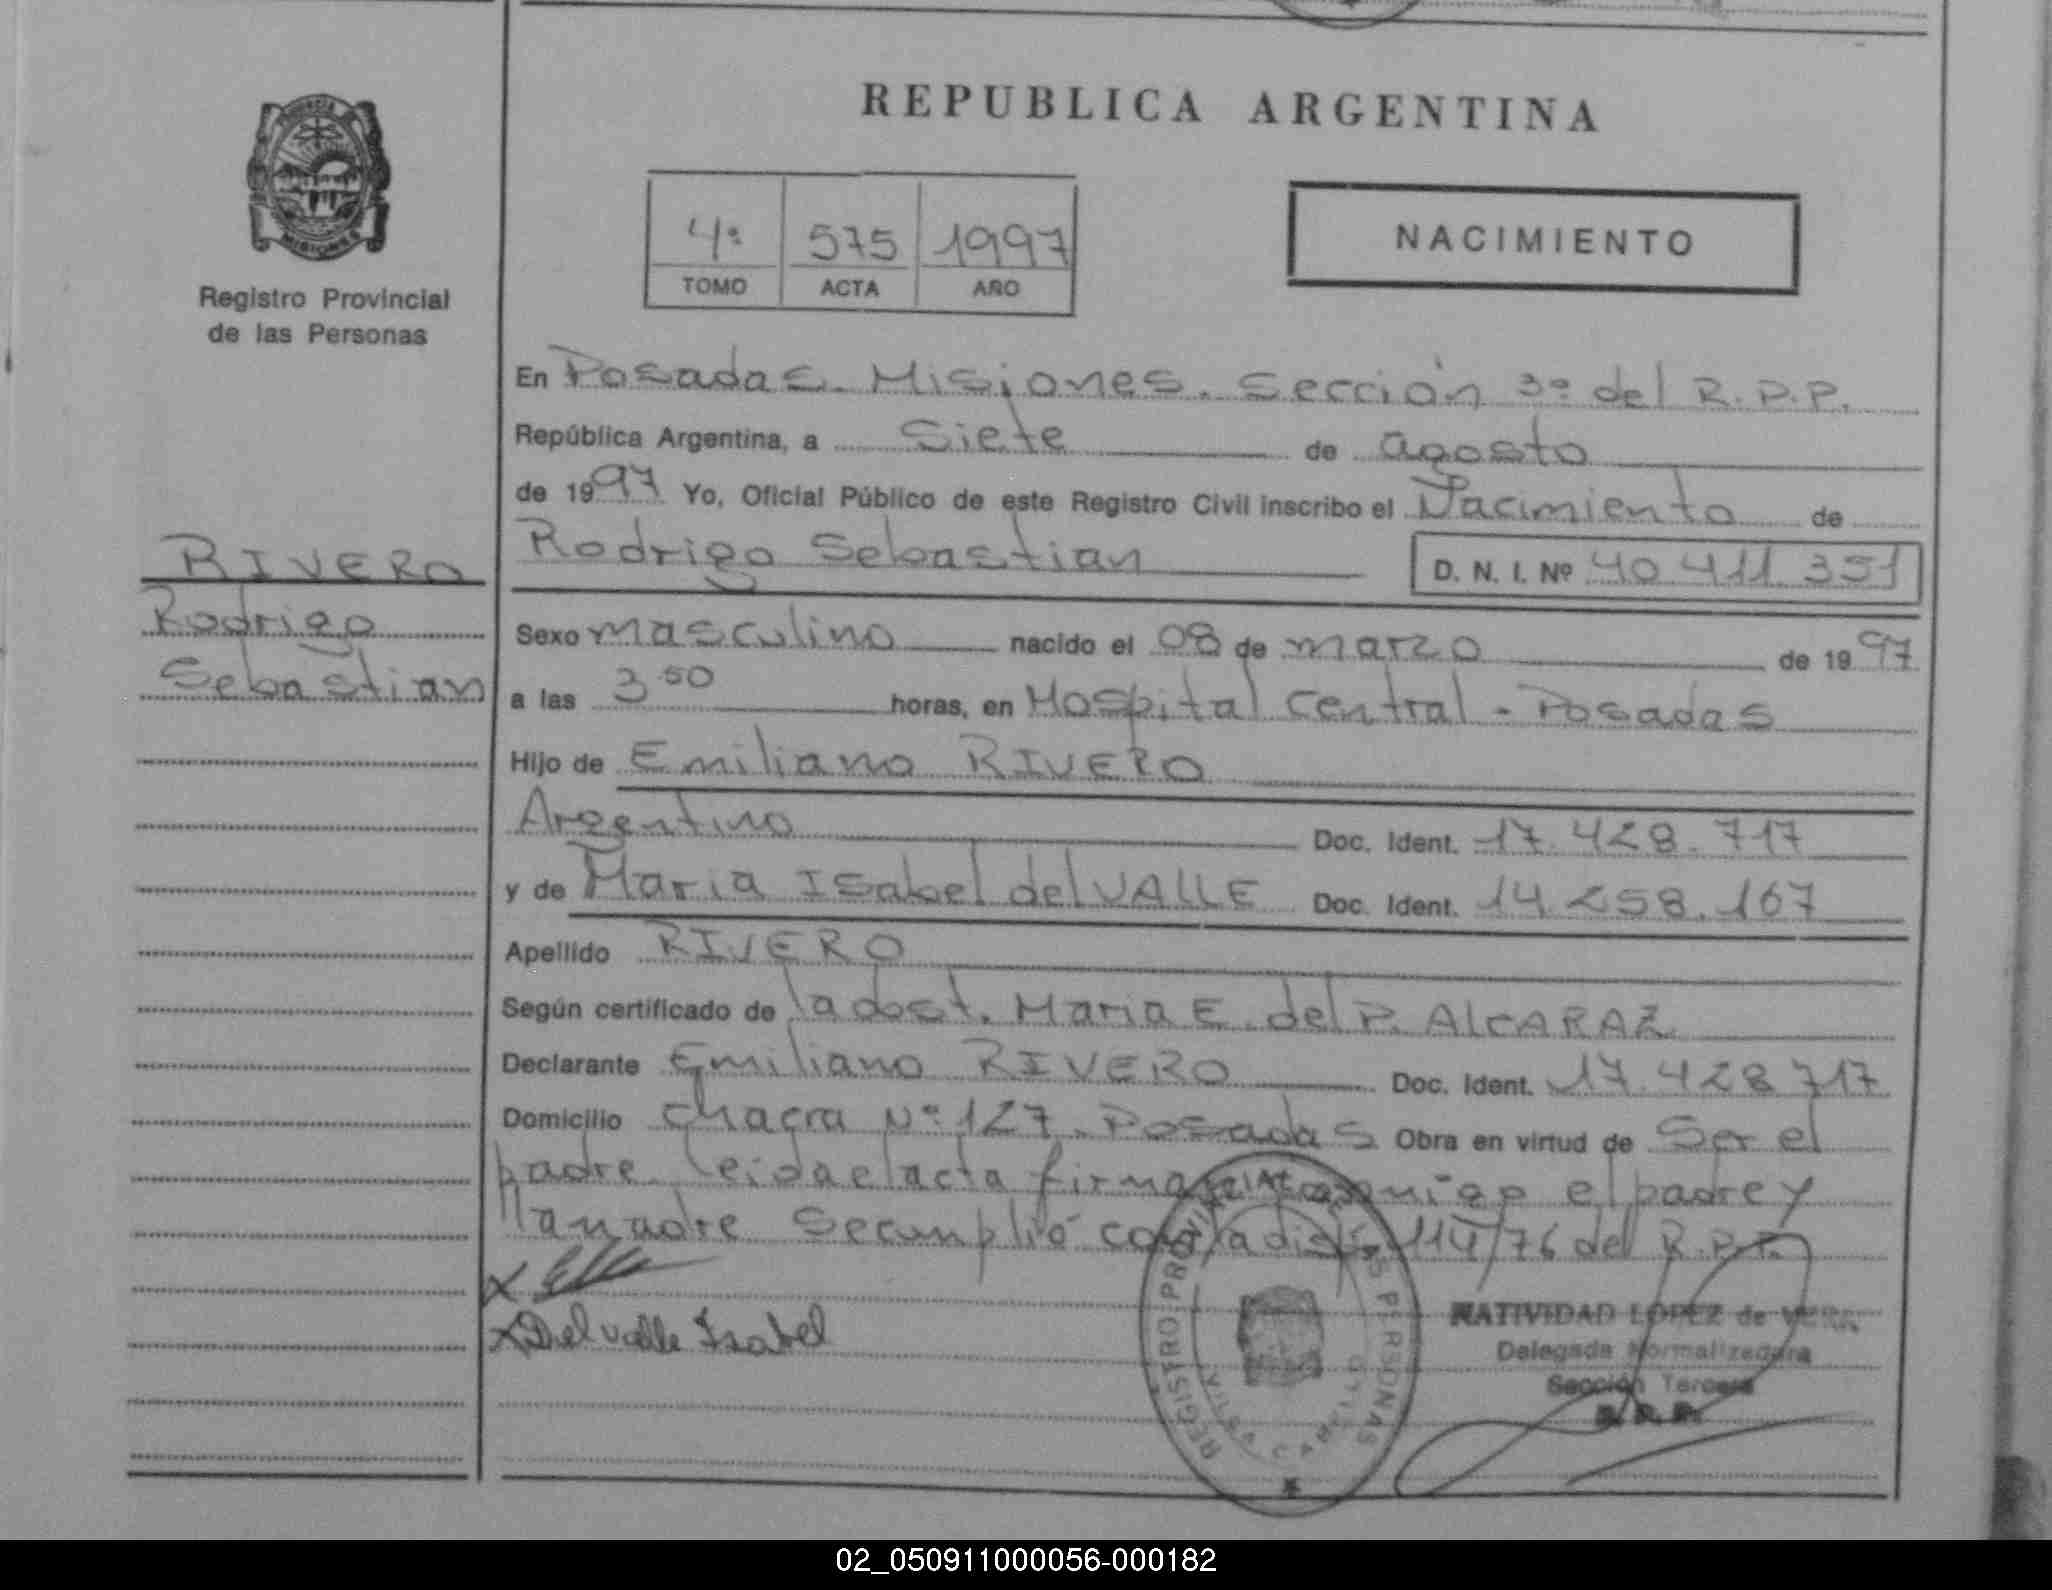 REPUBLICA ARGENTINA
PROVINCIA
MISIONES
Registro Provincial
de las Personas
4º 575 1997
TOMO ACTA AÑO
NACIMIENTO
En Posadas. Misiones. Sección 3º del R.P.P.
República Argentina, a Siete de agosto
de 1997 Yo, Oficial Público de este Registro Civil inscribo el Nacimiento de
Rodrigo Sebastian D. N. I. Nº 40 411 351
RIVERO
Rodrigo
Sebastian
Sexo masculino nacido el 08 de marzo de 1997
a las 3 50 horas, en Hospital Central - Posadas
Hijo de Emiliano RIVERO
Argentino Doc. Ident. 17.428.717
y de Maria Isabel del VALLE Doc. Ident. 14.258.167
Apellido RIVERO
Según certificado de la obst. Maria E. del P. ALCARAZ
Declarante Emiliano RIVERO Doc. Ident. 17.428 717
Domicilio Chacra Nº 127. Posadas Obra en virtud de Ser el
padre. Leida el acta firman conmigo el padre y
la madre Se cumplió con la disp. 114/76 del R.P.P.
X
X Del valle Isabel
REGISTRO PROVINCIAL DE LAS PERSONAS
NATIVIDAD LOPEZ de VERA
Delegada Normalizadora
Sección Tercera
R. P. P.
02_050911000056-000182